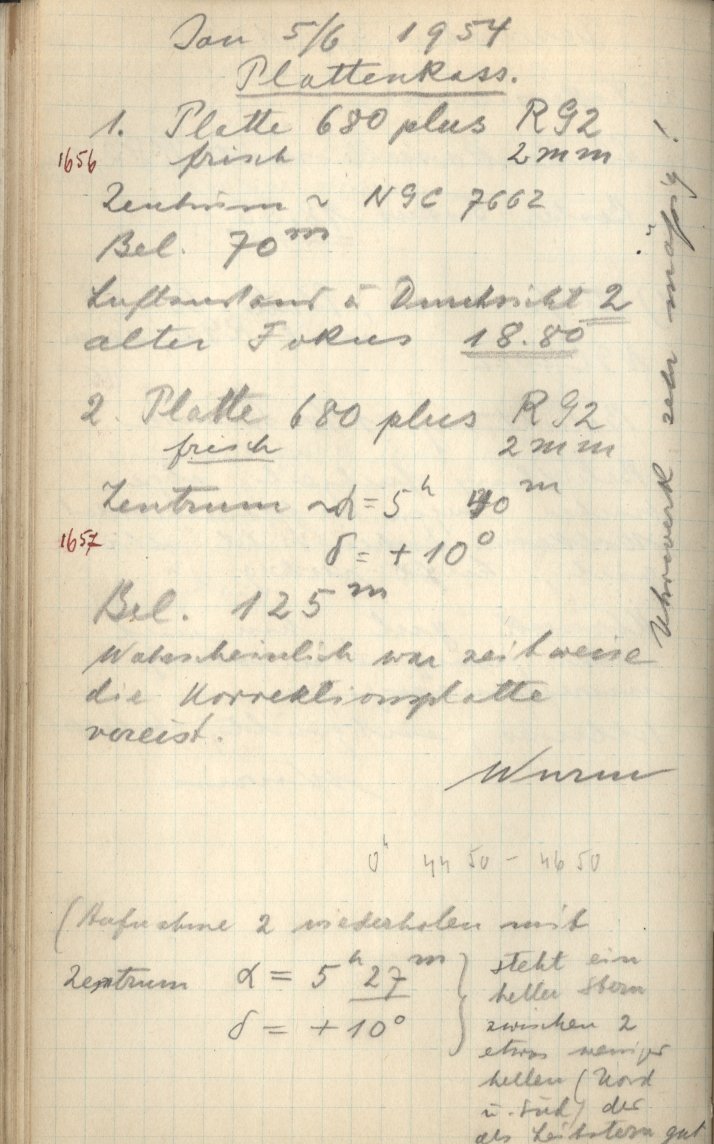 Jan 5/6 1954
Plattenkass.
1. Platte 680 plus RG2
1656 frisch 2 mm
Zentrum ~ NGC 7662
Bel. 70m
Luftzustand u Durchsicht 2
alter Fokus 18.80
2. Platte 680 plus RG2
frisch 2 mm
Zentrum ~ α = 5h 40m
1657 δ = + 10°
Bel. 125m
Wahrscheinlich war zeitweise
die Korrektionsplatte
vereist.
Wurm
Uhrwerk sehr mäßig!
0h 44 50 - 46 50
(Aufnahme 2 wiederholen mit
Zentrum α = 5h 27m
δ = + 10°
steht ein
heller Stern
zwischen 2
etwas weniger
hellen (Nord
u. Süd) der
als Leitstern gut